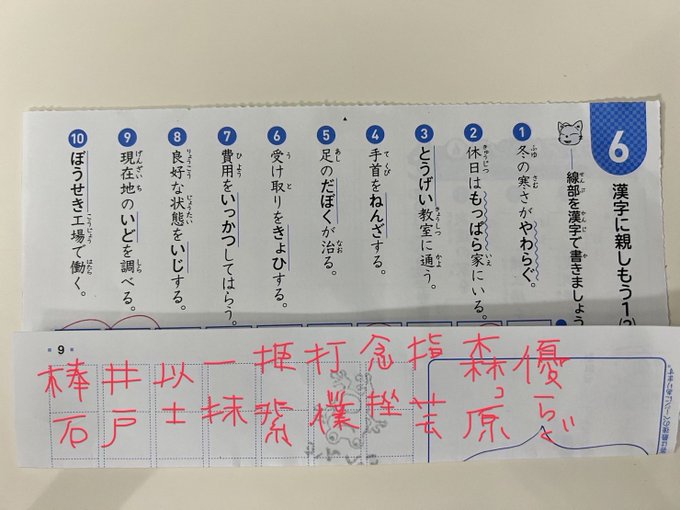 6 漢字に親しもう1
線部を漢字で書きましょう
1 冬の寒さがやわらぐ。
2 休日はもっぱら家にいる。
3 とうげい教室に通う。
4 手首をねんざする。
5 足のだぼくが治る。
6 受け取りをきょひする。
7 費用をいっかつしてはらう。
8 良好な状態をいじする。
9 現在地のいどを調べる。
10 ぼうせき工場で働く。
優らぐ
森っ原
指芸
念挫
打僕
拒紫
一抹
以士
井戸
棒石
9